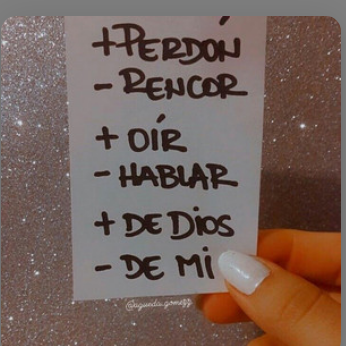 +PERDÓN
- RENCOR
+ OÍR
- HABLAR
+ DE DIOS
- DE MI
@agueda.gomezz